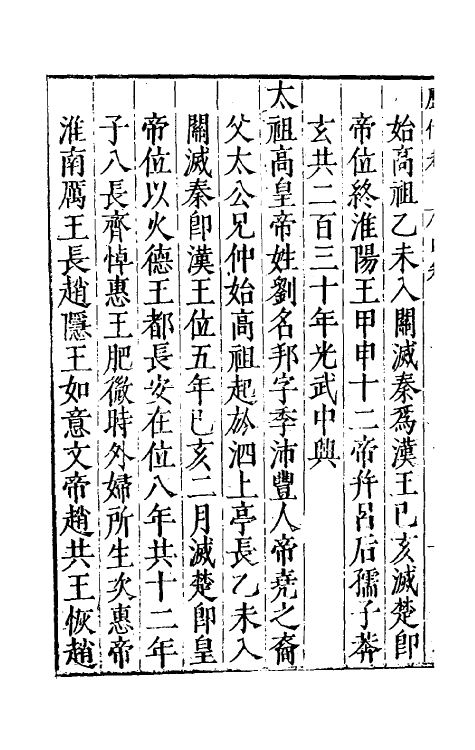 始高祖乙未入關滅秦爲漢王已亥滅楚即
帝位終淮陽王甲申十二帝幷呂后孺子莽
玄共二百三十年光武中興
太祖高皇帝姓劉名邦字季沛豐人帝堯之裔
父太公兄仲始高祖起於泗上亭長乙未入
關滅秦卽漢王位五年已亥二月滅楚卽皇
帝位以火德王都長安在位八年共十二年
子八長齊悼惠王肥微時外婦所生次惠帝
淮南厲王長趙隱王如意文帝趙共王恢趙